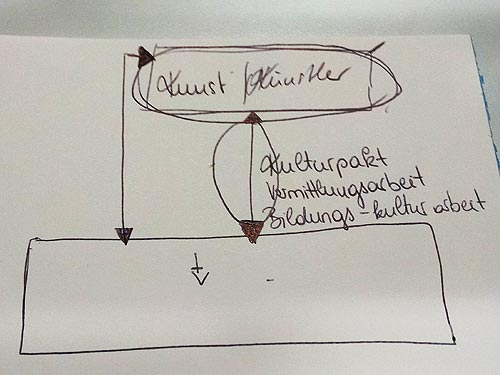 Kunst / Künstler
Kulturpakt
Vermittlungsarbeit
Bildungs-kulturarbeit